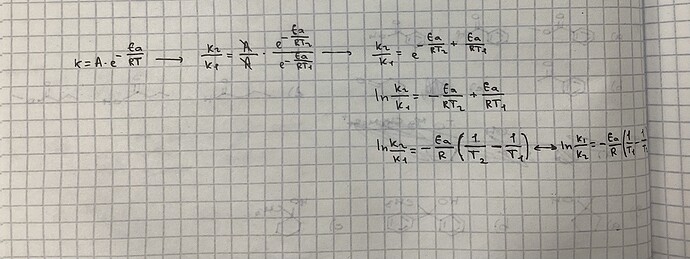 k = A · e^(-Ea/RT) ⟶ k₂/k₁ = A/A · e^(-Ea/RT₂)/e^(-Ea/RT₁) ⟶ k₂/k₁ = e^(-Ea/RT₂ + Ea/RT₁)
ln k₂/k₁ = -Ea/RT₂ + Ea/RT₁
ln k₂/k₁ = -Ea/R (1/T₂ - 1/T₁) ⟷ ln k₁/k₂ = -Ea/R (1/T₁ - 1/